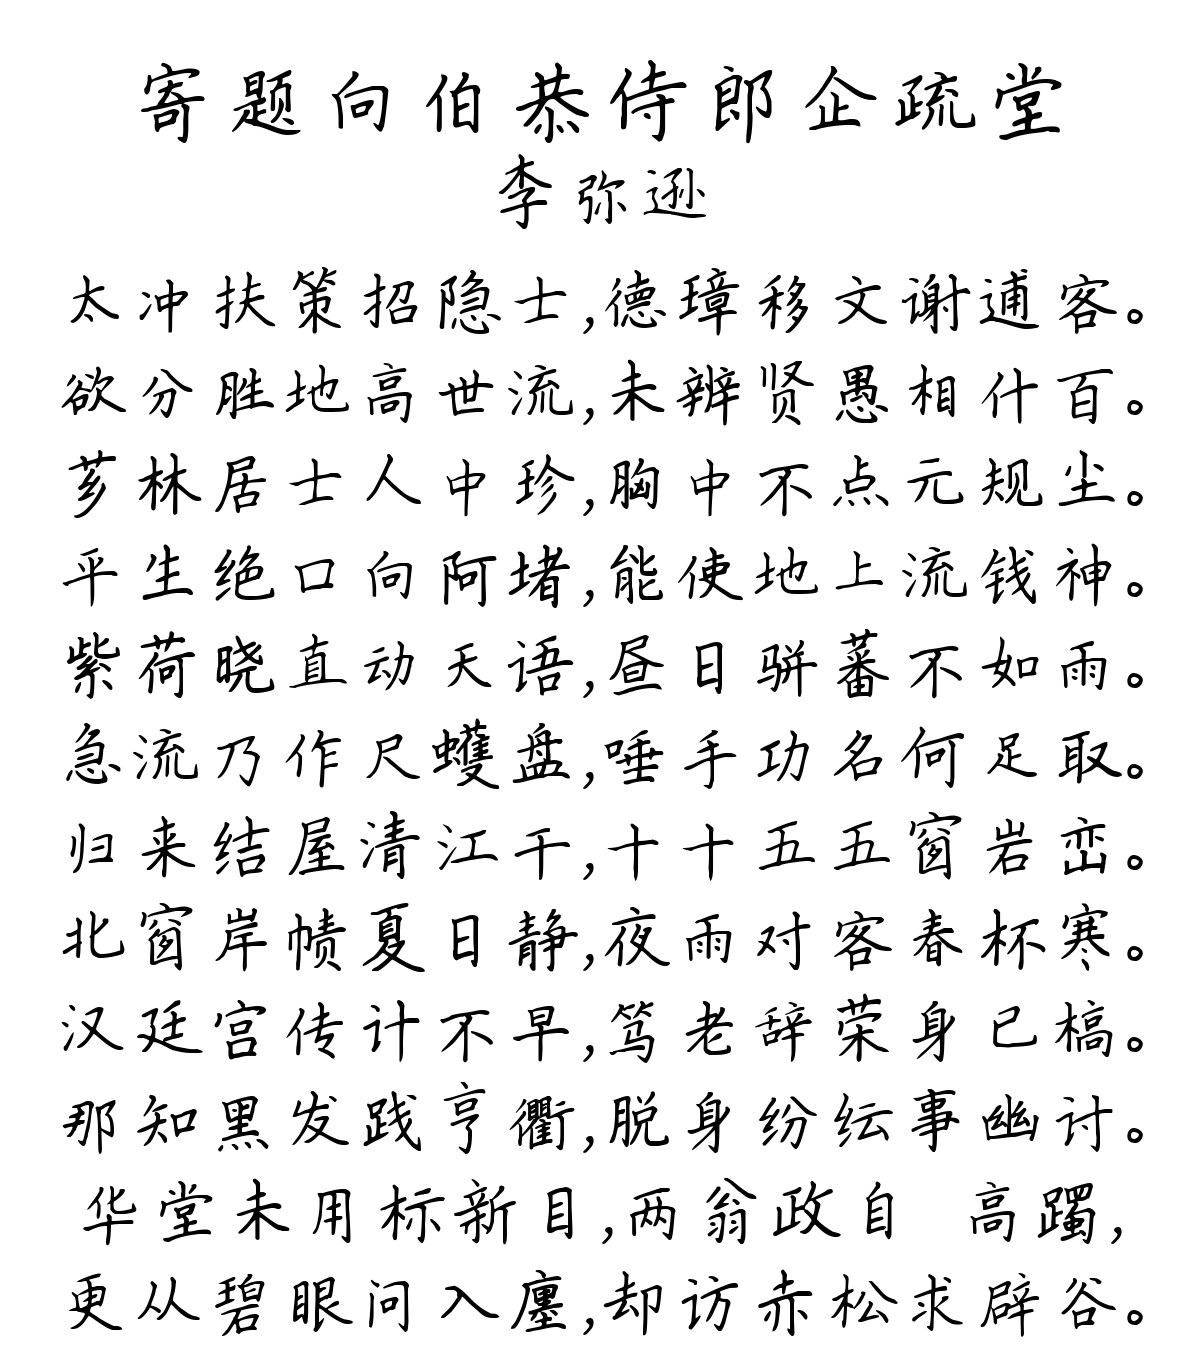 寄题向伯恭侍郎企疏堂
李弥逊
太冲扶策招隐士,德璋移文谢逋客。
欲分胜地高世流,未辨贤愚相什百。
芗林居士人中珍,胸中不点元规尘。
平生绝口向阿堵,能使地上流钱神。
紫荷晓直动天语,昼日骈蕃不如雨。
急流乃作尺蠖盘,唾手功名何足取。
归来结屋清江干,十十五五窗岩峦。
北窗岸帻夏日静,夜雨对客春杯寒。
汉廷宫传计不早,笃老辞荣身已槁。
那知黑发践亨衢,脱身纷纭事幽讨。
华堂未用标新目,两翁政自 高躅,
更从碧眼问入廛,却访赤松求辟谷。